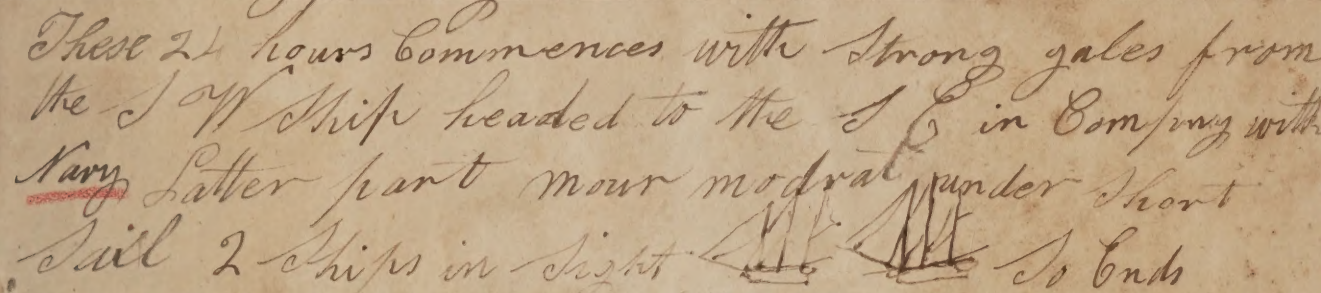 These 24 hours Commences with Strong gales from
the S W Ship headed to the S E in Compny with
Navy Latter part mour modrat under Short
Sail 2 Ships in Sight So Ends